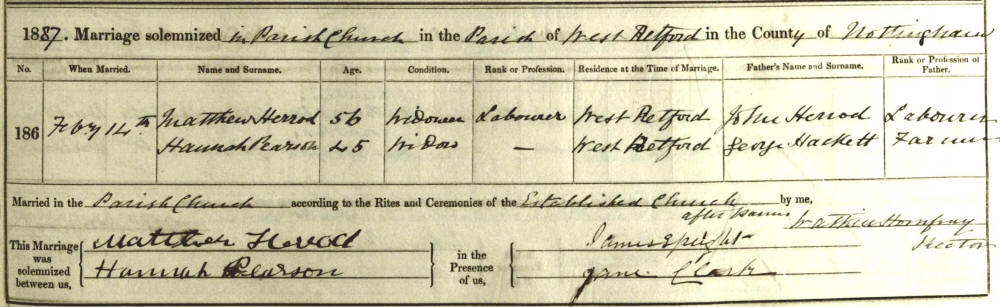 1887. Marriage solemnized in Parish Church in the Parish of West Retford in the County of Nottingham
No. When Married. Name and Surname. Age. Condition. Rank or Profession. Residence at the Time of Marriage. Father's Name and Surname. Rank or Profession of Father.
186 Feby 14th Matthew Herrod 56 Widower Labourer West Retford John Herrod Labourer
Hannah Pearson 45 Widow — West Retford George Hackett Farmer
Married in the Parish Church according to the Rites and Ceremonies of the Established Church by me,
after Banns
Rector
This Marriage was solemnized between us, Matthew Herod in the Presence of us, James
Hannah Pearson Jane Clark